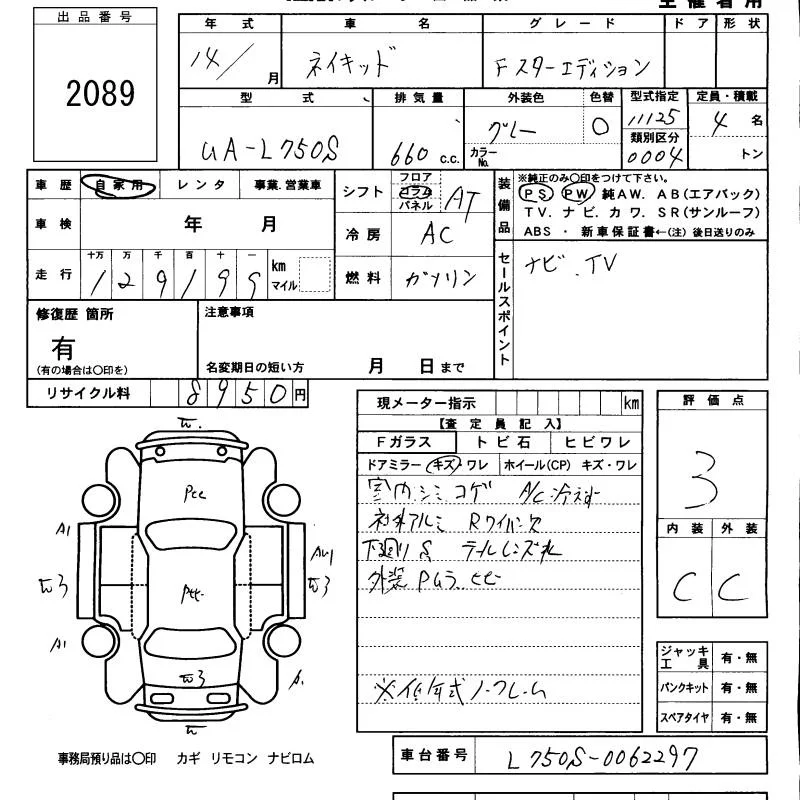 出品番号
2089
年式 車名 グレード ドア 形状
14/月 ネイキッド Fスターエディション
型式 排気量 外装色 色替 型式指定 定員・積載
UA-L750S 660 c.c. グレー カラーNo. 〇 11125 類別区分 0004 4名 トン
車歴 自家用 レンタ 事業.営業車
車検 年 月
走行 十万 万 千 百 十 一
129199 km マイル
シフト フロア コラム パネル AT
冷房 AC
燃料 ガソリン
装備品
※純正のみ〇印をつけて下さい。
PS PW 純AW. AB(エアバック)
TV. ナビ. カワ. SR(サンルーフ)
ABS ・ 新車保証書←(注)後日送りのみ
セールスポイント
ナビ.TV
修復歴 箇所
有
(有の場合は〇印を)
注意事項
名変期日の短い方 月 日まで
リサイクル料 8950円
現メーター指示 km
【査定員記入】
Fガラス トビ石 ヒビワレ
ドアミラー キズ・ワレ ホイール(CP) キズ・ワレ
室内シミ コゲ A/C冷えず
社外アルミ Rワイパー欠
下廻りS テールレンズ水
外装PMラ.ヒビ
※低年式ノークレーム
評価点
3
内装 外装
C C
ジャッキ工具 有・無
パンクキット 有・無
スペアタイヤ 有・無
A1
A1
事務局預り品は〇印 カギ リモコン ナビロム
車台番号 L750S-0062297